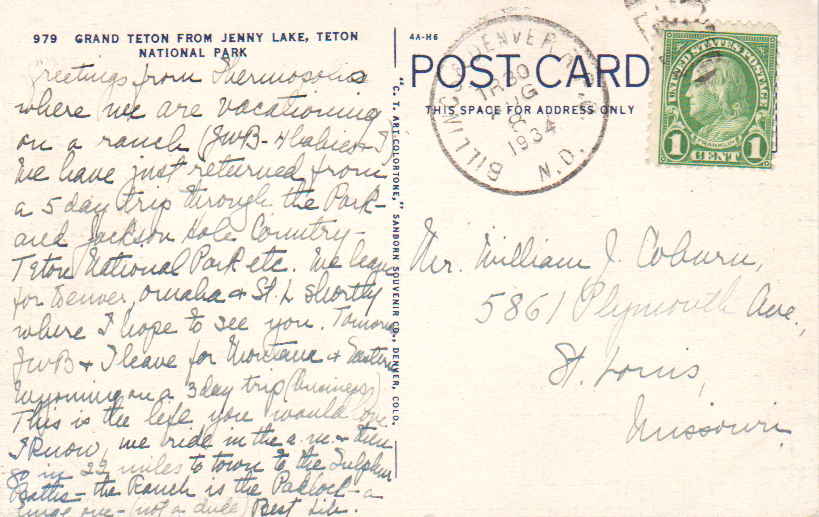 979 GRAND TETON FROM JENNY LAKE, TETON
NATIONAL PARK
Greetings from Thermopolis
where we are vacationing
on a ranch (JWB - 4 babies + I)
We have just returned from
a 5 day trip through the Park -
and Jackson Hole Country -
Teton National Park etc. We leave
for Denver, Omaha & St. L shortly
where I hope to see you. Tomorrow
JWB & I leave for Montana & Eastern
Wyoming on a 3 day trip (business)
This is the life you would love
I know, we ride in the a.m. & then
go in 22 miles to town to the Sulphur
Baths - the Ranch is the Padlock - a
huge one - (not a dude) Best
"C. T. ART-COLORTONE," SANBORN SOUVENIR CO., DENVER, COLO.
4A-H6
POST CARD
THIS SPACE FOR ADDRESS ONLY
BILLINGS & DENVER
TR 30
AUG
8
1934
N.D.
UNITED STATES POSTAGE
FRANKLIN
1 CENT 1
Mr. William J. Coburn,
5861 Plymouth Ave.,
St. Louis,
Missouri.